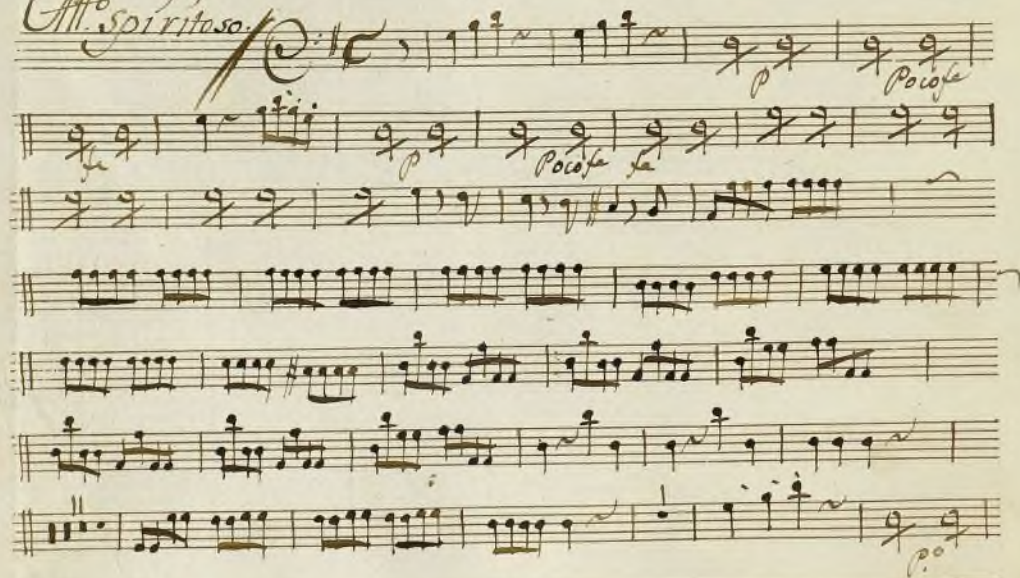 All.º Spiritoso.
P Pocofe
fe P Pocofe fe
p.º